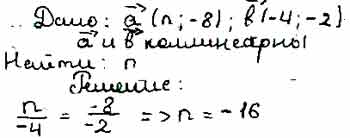 Дано: a⃗ (n; -8); b⃗ (-4; -2)
a⃗ и b⃗ коллинеарны
Найти: n
Решение:
n/-4 = -8/-2 => n = -16